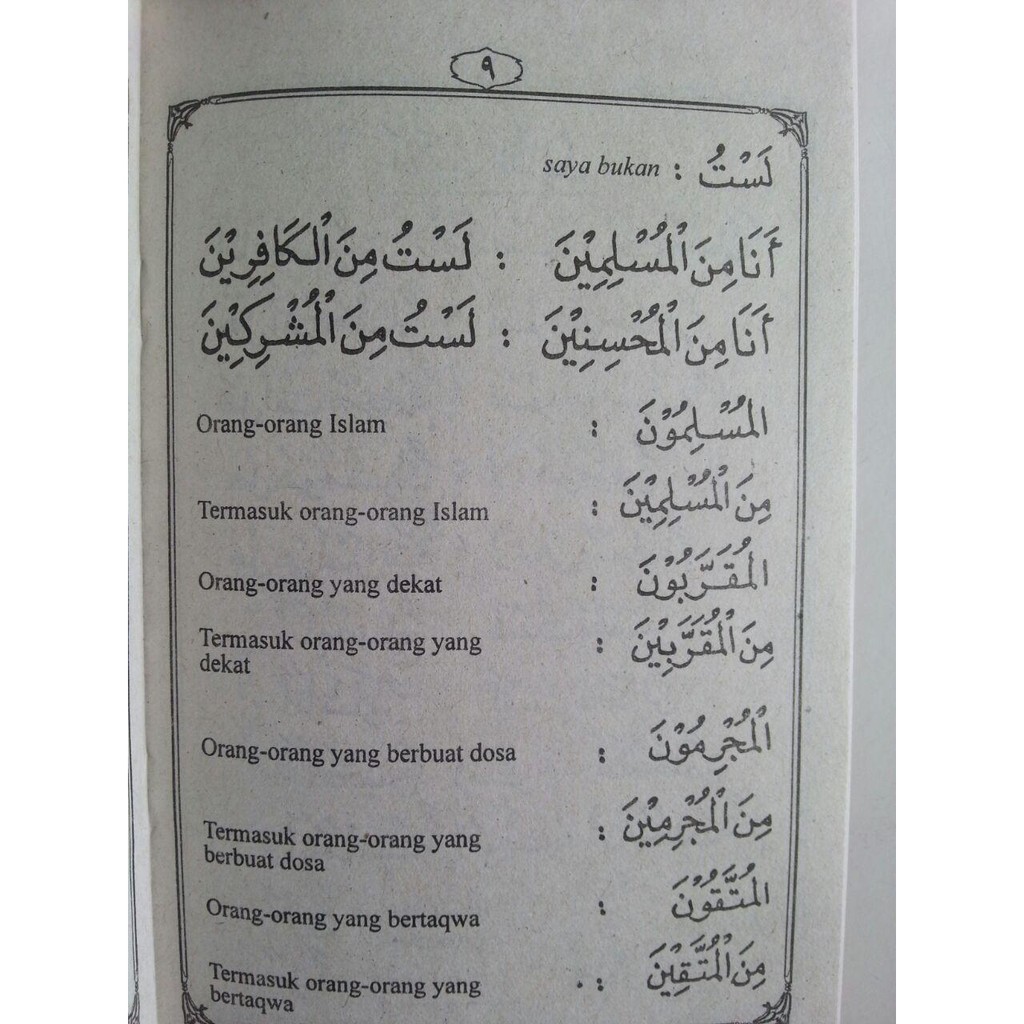 ٩
لَسْتُ : saya bukan
أَنَا مِنَ الْمُسْلِمِيْنَ : لَسْتُ مِنَ الْكَافِرِيْنَ
أَنَا مِنَ الْمُحْسِنِيْنَ : لَسْتُ مِنَ الْمُشْرِكِيْنَ
الْمُسْلِمُوْنَ : Orang-orang Islam
مِنَ الْمُسْلِمِيْنَ : Termasuk orang-orang Islam
الْمُقَرَّبُوْنَ : Orang-orang yang dekat
مِنَ الْمُقَرَّبِيْنَ : Termasuk orang-orang yang
dekat
الْمُجْرِمُوْنَ : Orang-orang yang berbuat dosa
مِنَ الْمُجْرِمِيْنَ : Termasuk orang-orang yang
berbuat dosa
الْمُتَّقُوْنَ : Orang-orang yang bertaqwa
مِنَ الْمُتَّقِيْنَ : Termasuk orang-orang yang
bertaqwa